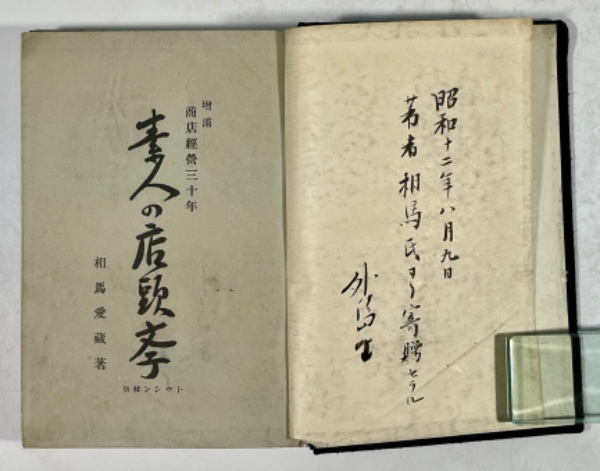 昭和十二年八月九日
著者 相馬氏ヨリ寄贈セラル
増補
商店經營三十年
素人の店頭斈
相馬愛藏著